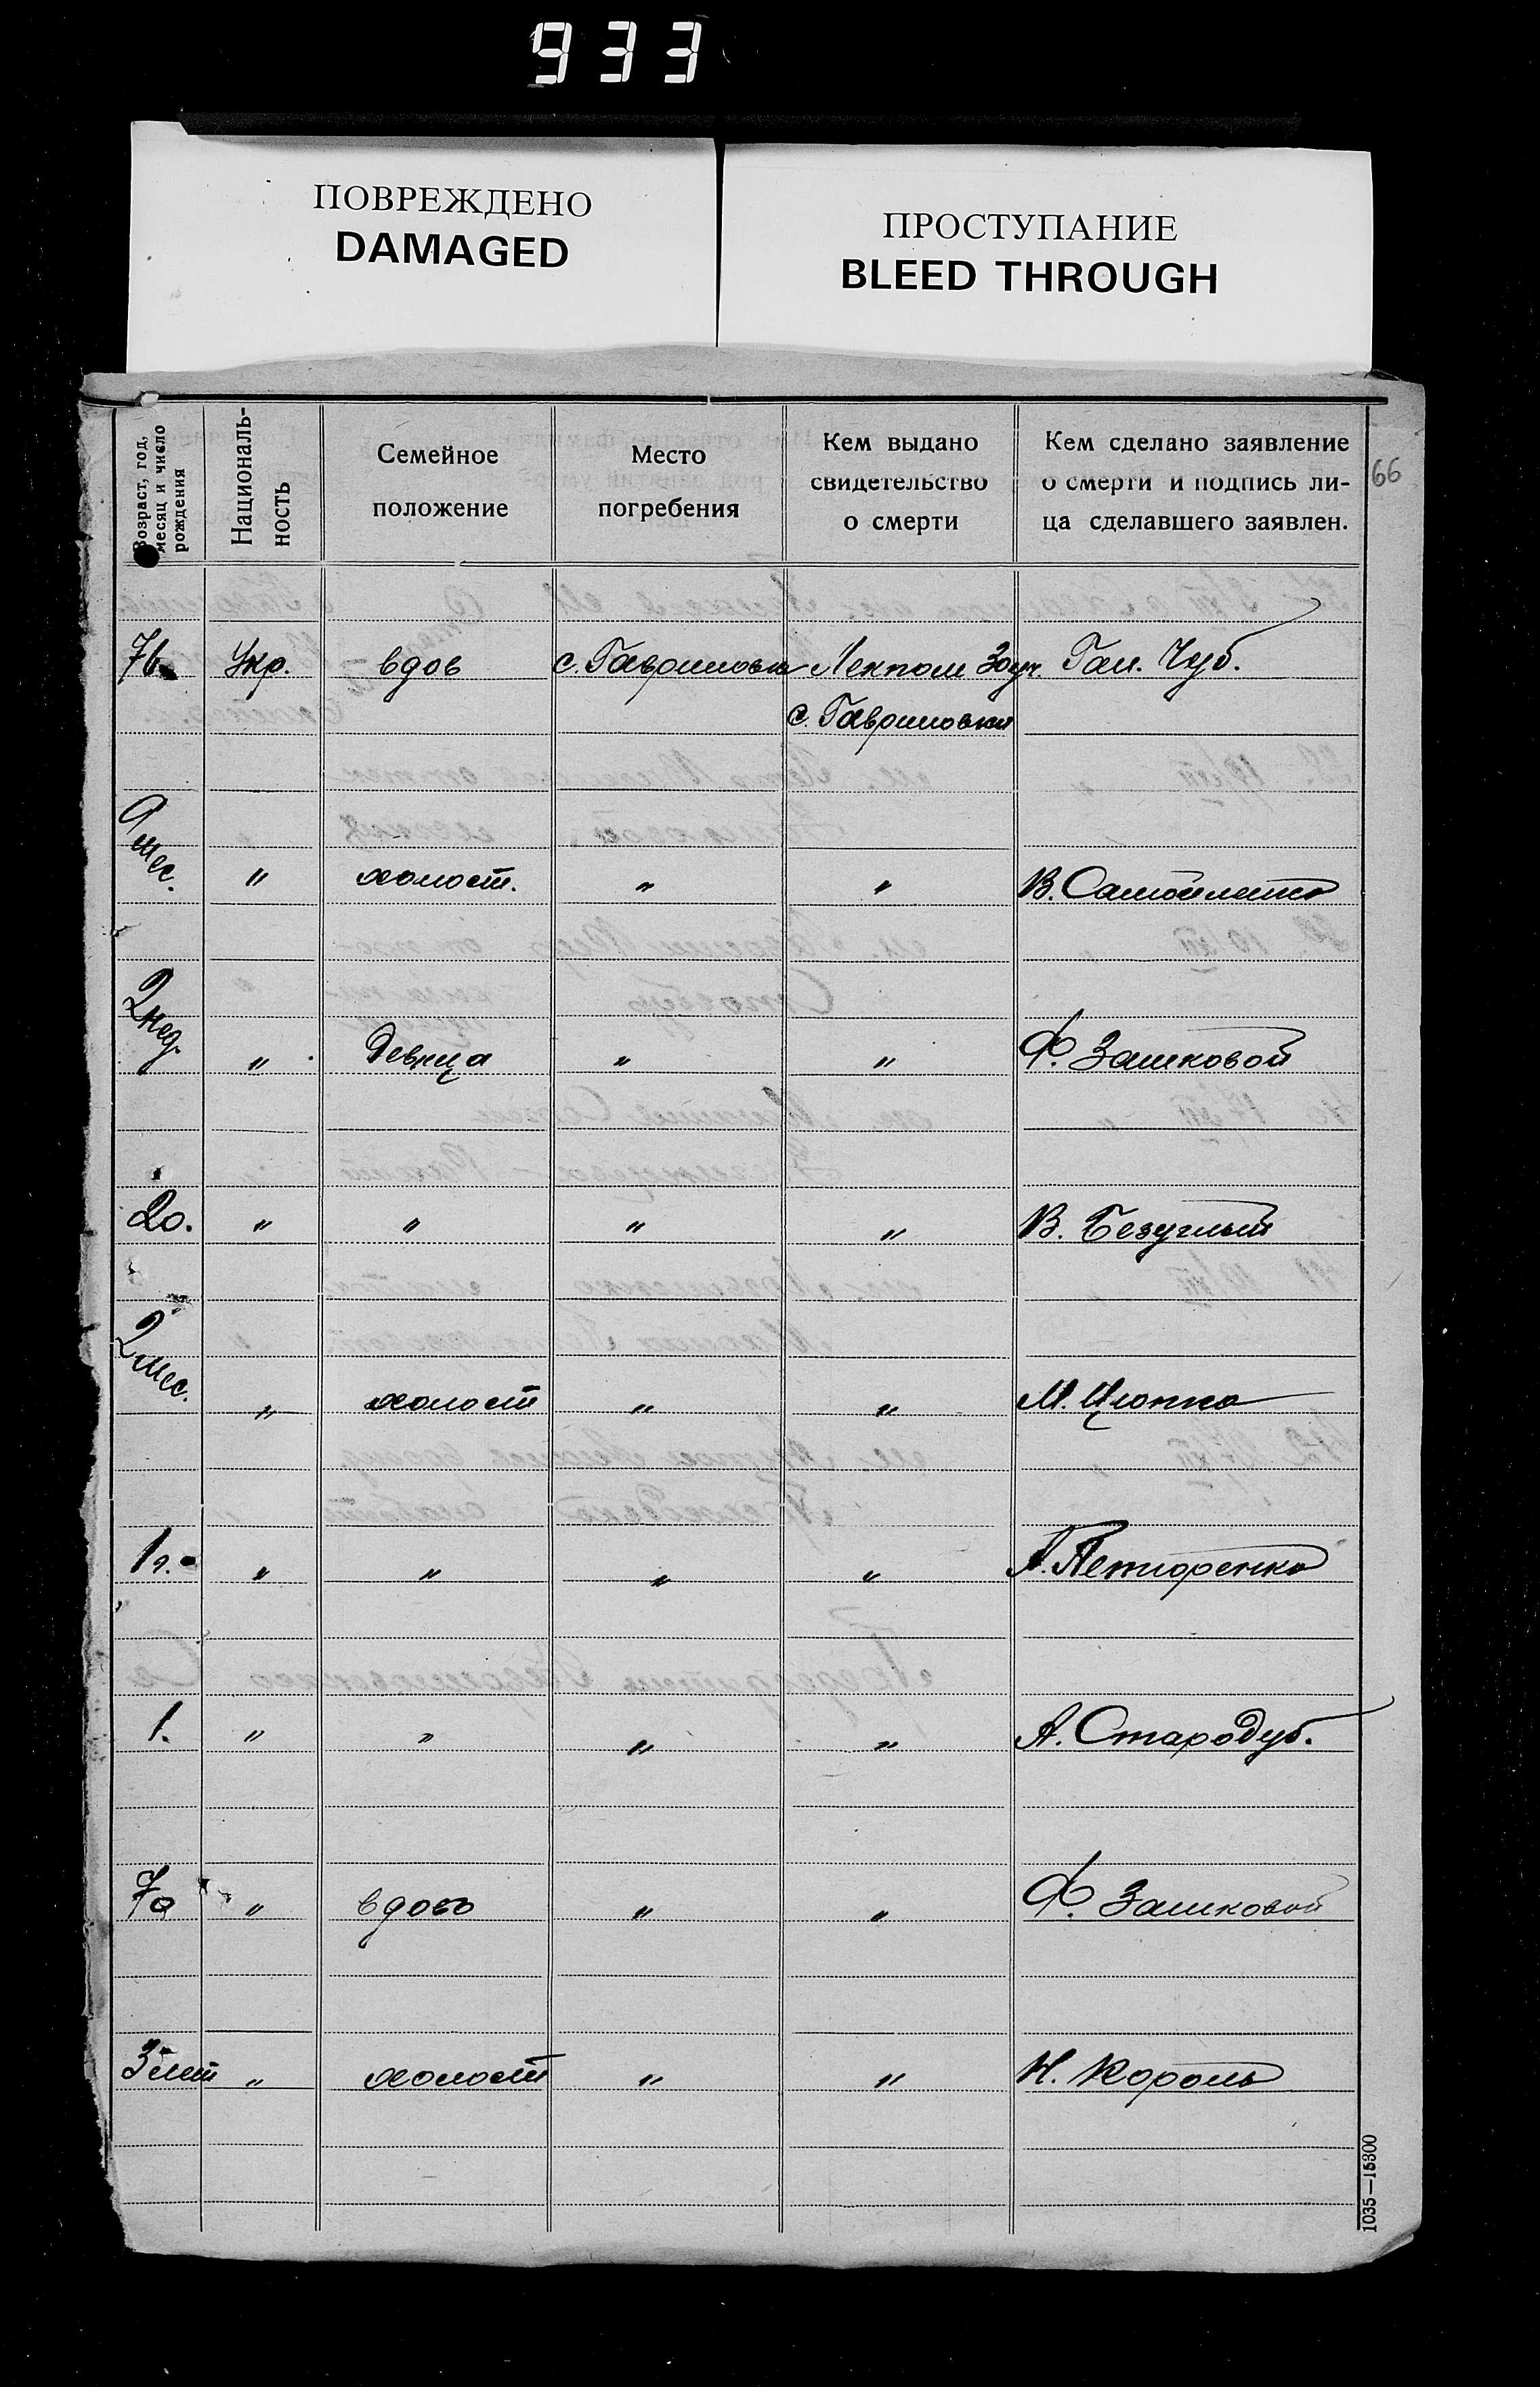 933
ПОВРЕЖДЕНО
DAMAGED
ПРОСТУПАНИЕ
BLEED THROUGH
66
Возраст, год, месяц и число рождения
Националь-
ность
Семейное
положение
Место
погребения
Кем выдано
свидетельство
о смерти
Кем сделано заявление
о смерти и подпись ли-
ца сделавшего заявлен.
Укр. вдов с. Гавриловка Лекпом Зауч. Гал. Чуб.
с. Гавриловки
9 мес. " холост. " " В. Самойленко
2 нед. " девица " " Ф. Зашковой
20. " " " " В. Безуглый
2 мес. " холост " " М. Цюпко
1 г. " " " " Петторенко
1. " " " " А. Стародуб.
70 " вдова " " Ф. Зашковой
3 лет " холост " " Н. Король
1035—15300